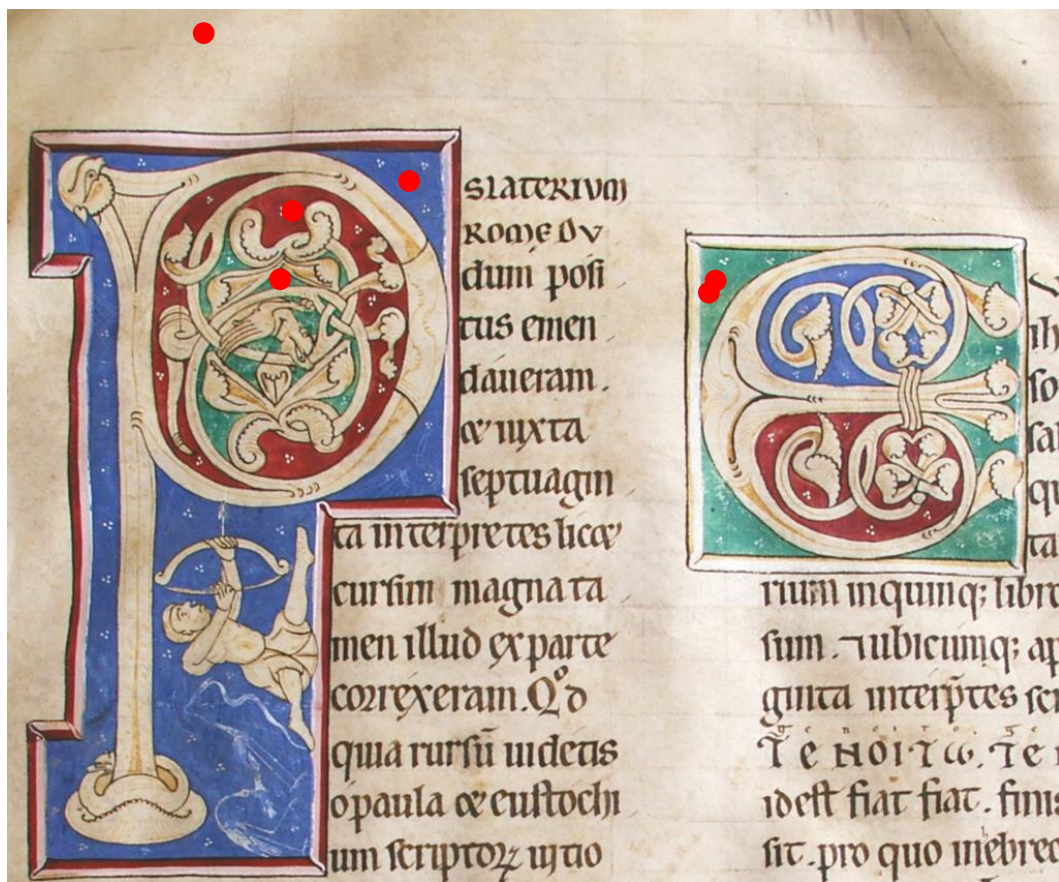 PSLATERIUM
ROME DU
dum posi
tus emen
daueram.
& iuxta
septuagin
ta interpretes lic&
cursim magna ta
men illud ex parte
correxeram. Qd
quia rursū uidetis
o paula & eustochi
um scriptorꝝ uitio
E
rium in quinq; libro
sum. ubicumq; ap
ginta interp̄tes scr
ΓΕΝΟΙΤѠ. ΓΕ
id est fiat fiat. finis
sit. pro quo in ebreo